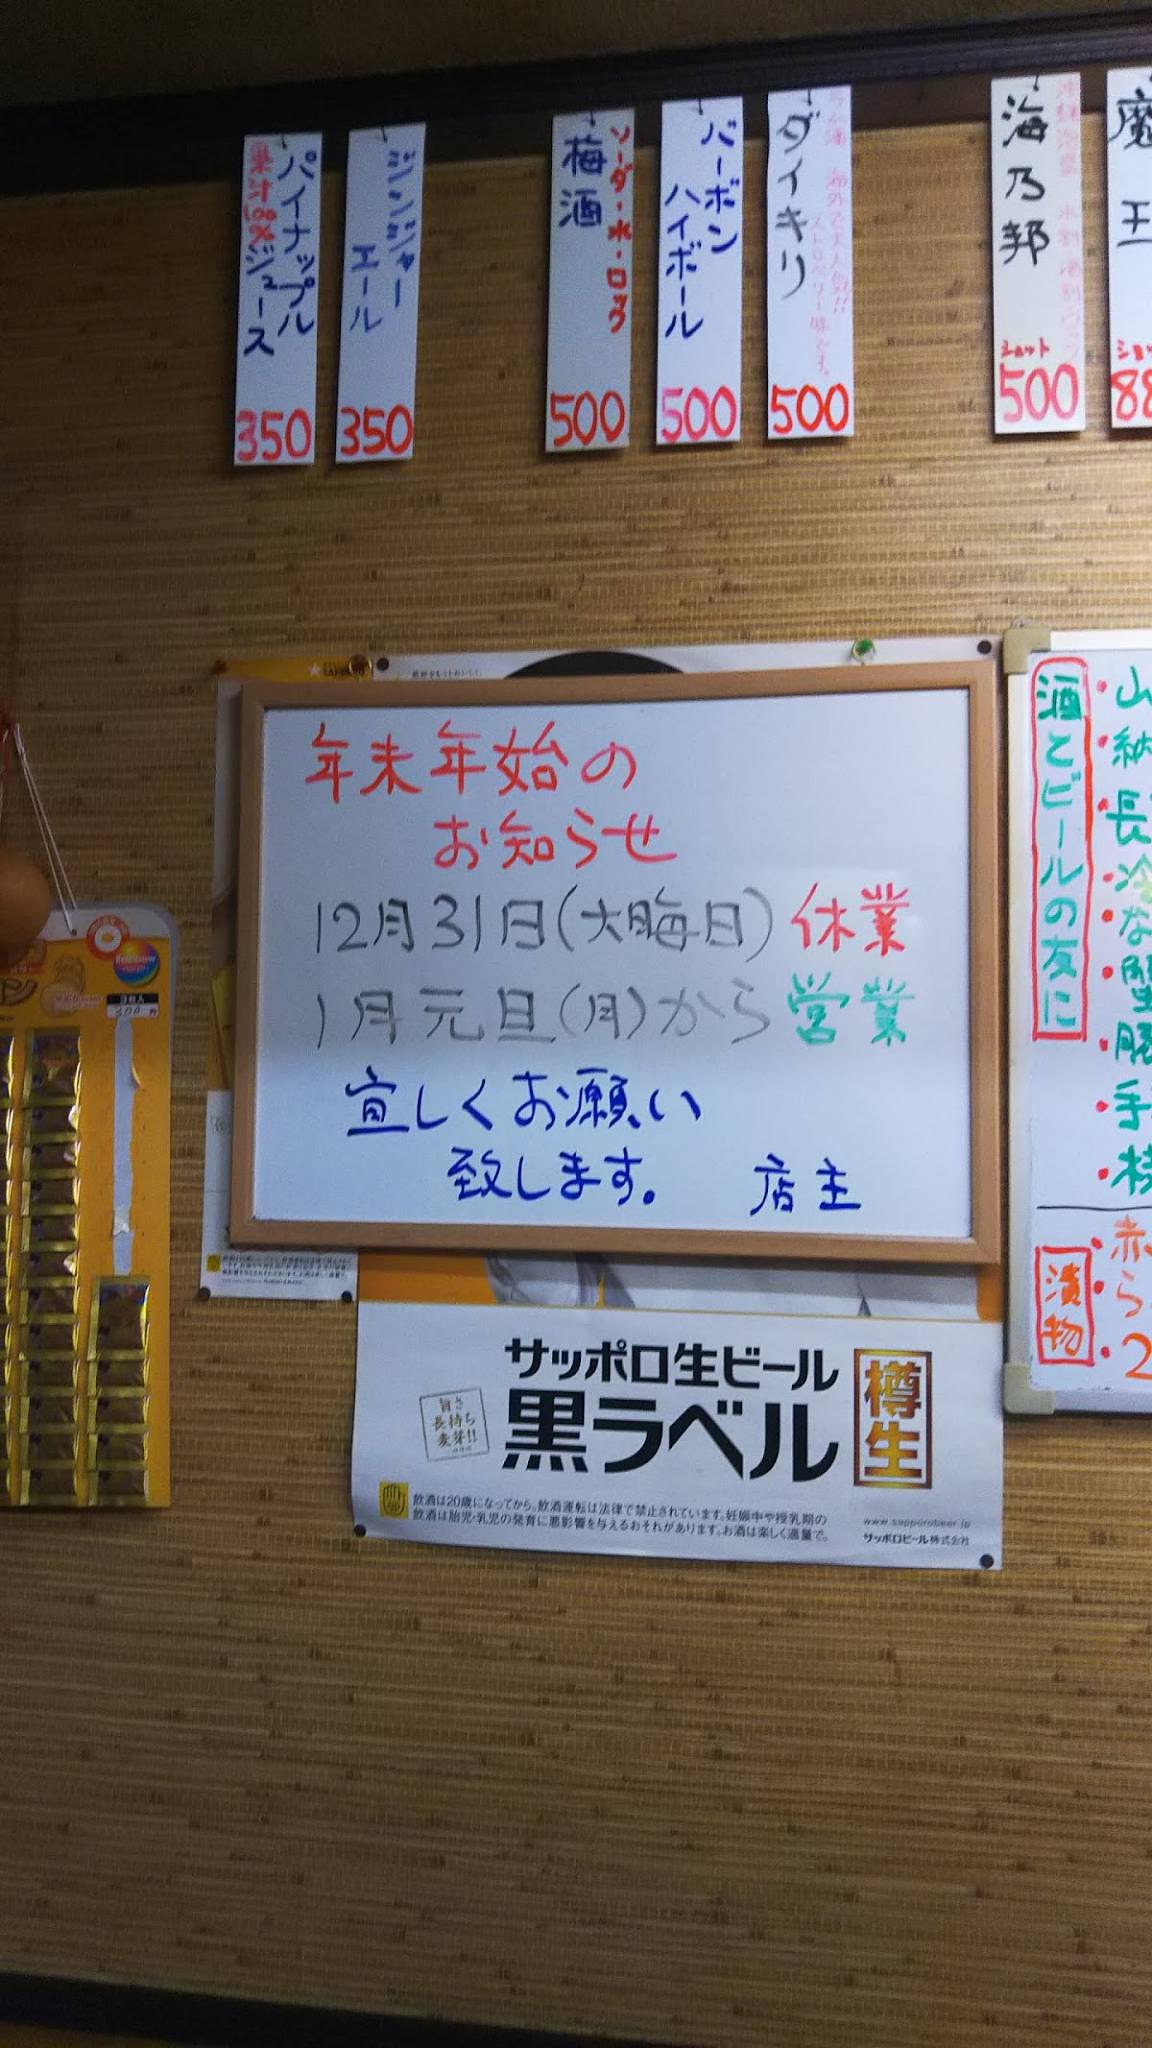 パイナップル
果汁100%ジュース
350
ジンジャー
エール
350
ソーダ・水・ロック
梅酒
500
バーボン
ハイボール
500
ダイキリ
ラム酒 海外で大人気!!
ストロベリー味です。
500
海乃邦
ショット
500
魔王
88
年末年始の
お知らせ
12月31日(大晦日)休業
1月元旦(月)から営業
宜しくお願い
致します。 店主
酒とビールの友に
・山
・納
・長
・冷
・な
・蟹
・豚
・手
漬物
・赤
・ら
・2
Rainbow
300
サッポロ生ビール
黒ラベル
樽生
旨さ
長持ち
麦芽!!
飲酒は20歳になってから。飲酒運転は法律で禁止されています。妊娠中や授乳期の
飲酒は胎児・乳児の発育に悪影響を与えるおそれがあります。お酒は楽しく適量で。
www.sapporobeer.jp
サッポロビール株式会社